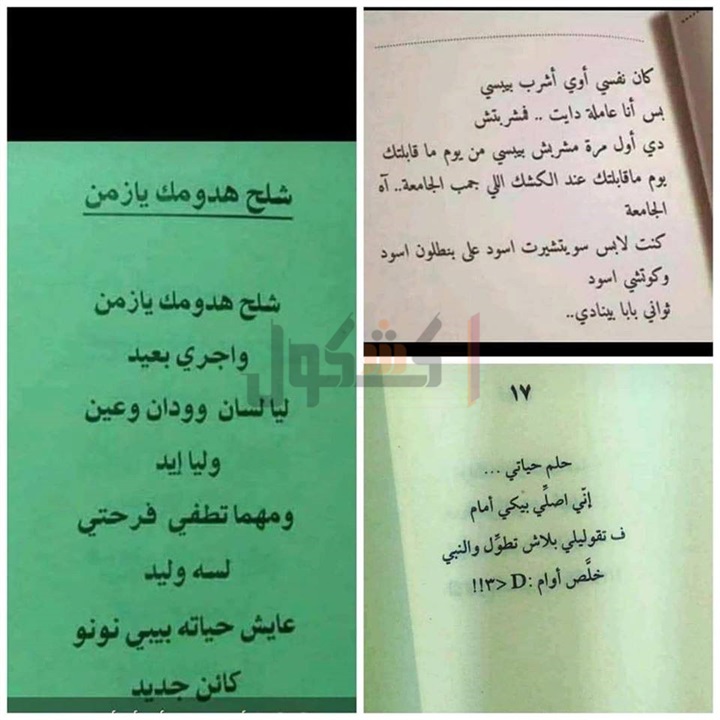 شلح هدومك يازمن
شلح هدومك يازمن
واجري بعيد
ليا لسان وودان وعين
وليا إيد
ومهما تطفي فرحتي
لسه وليد
عايش حياته بيبي نونو
كائن جديد
كان نفسي أوي أشرب بيبسي
بس أنا عاملة دايت .. فمشربتش
دي أول مرة مشربش بيبسي من يوم ما قابلتك
يوم ماقابلتك عند الكشك اللي جمب الجامعة.. آه
الجامعة
كنت لابس سويتشيرت اسود على بنطلون اسود
وكوتشي اسود
ثواني بابا بينادي..
١٧
حلم حياتي ...
إنّي اصلِّي بيكي أمام
ف تقوليلي بلاش تطوِّل والنبي
خلَّص أوام :D <٣!!
كشكول